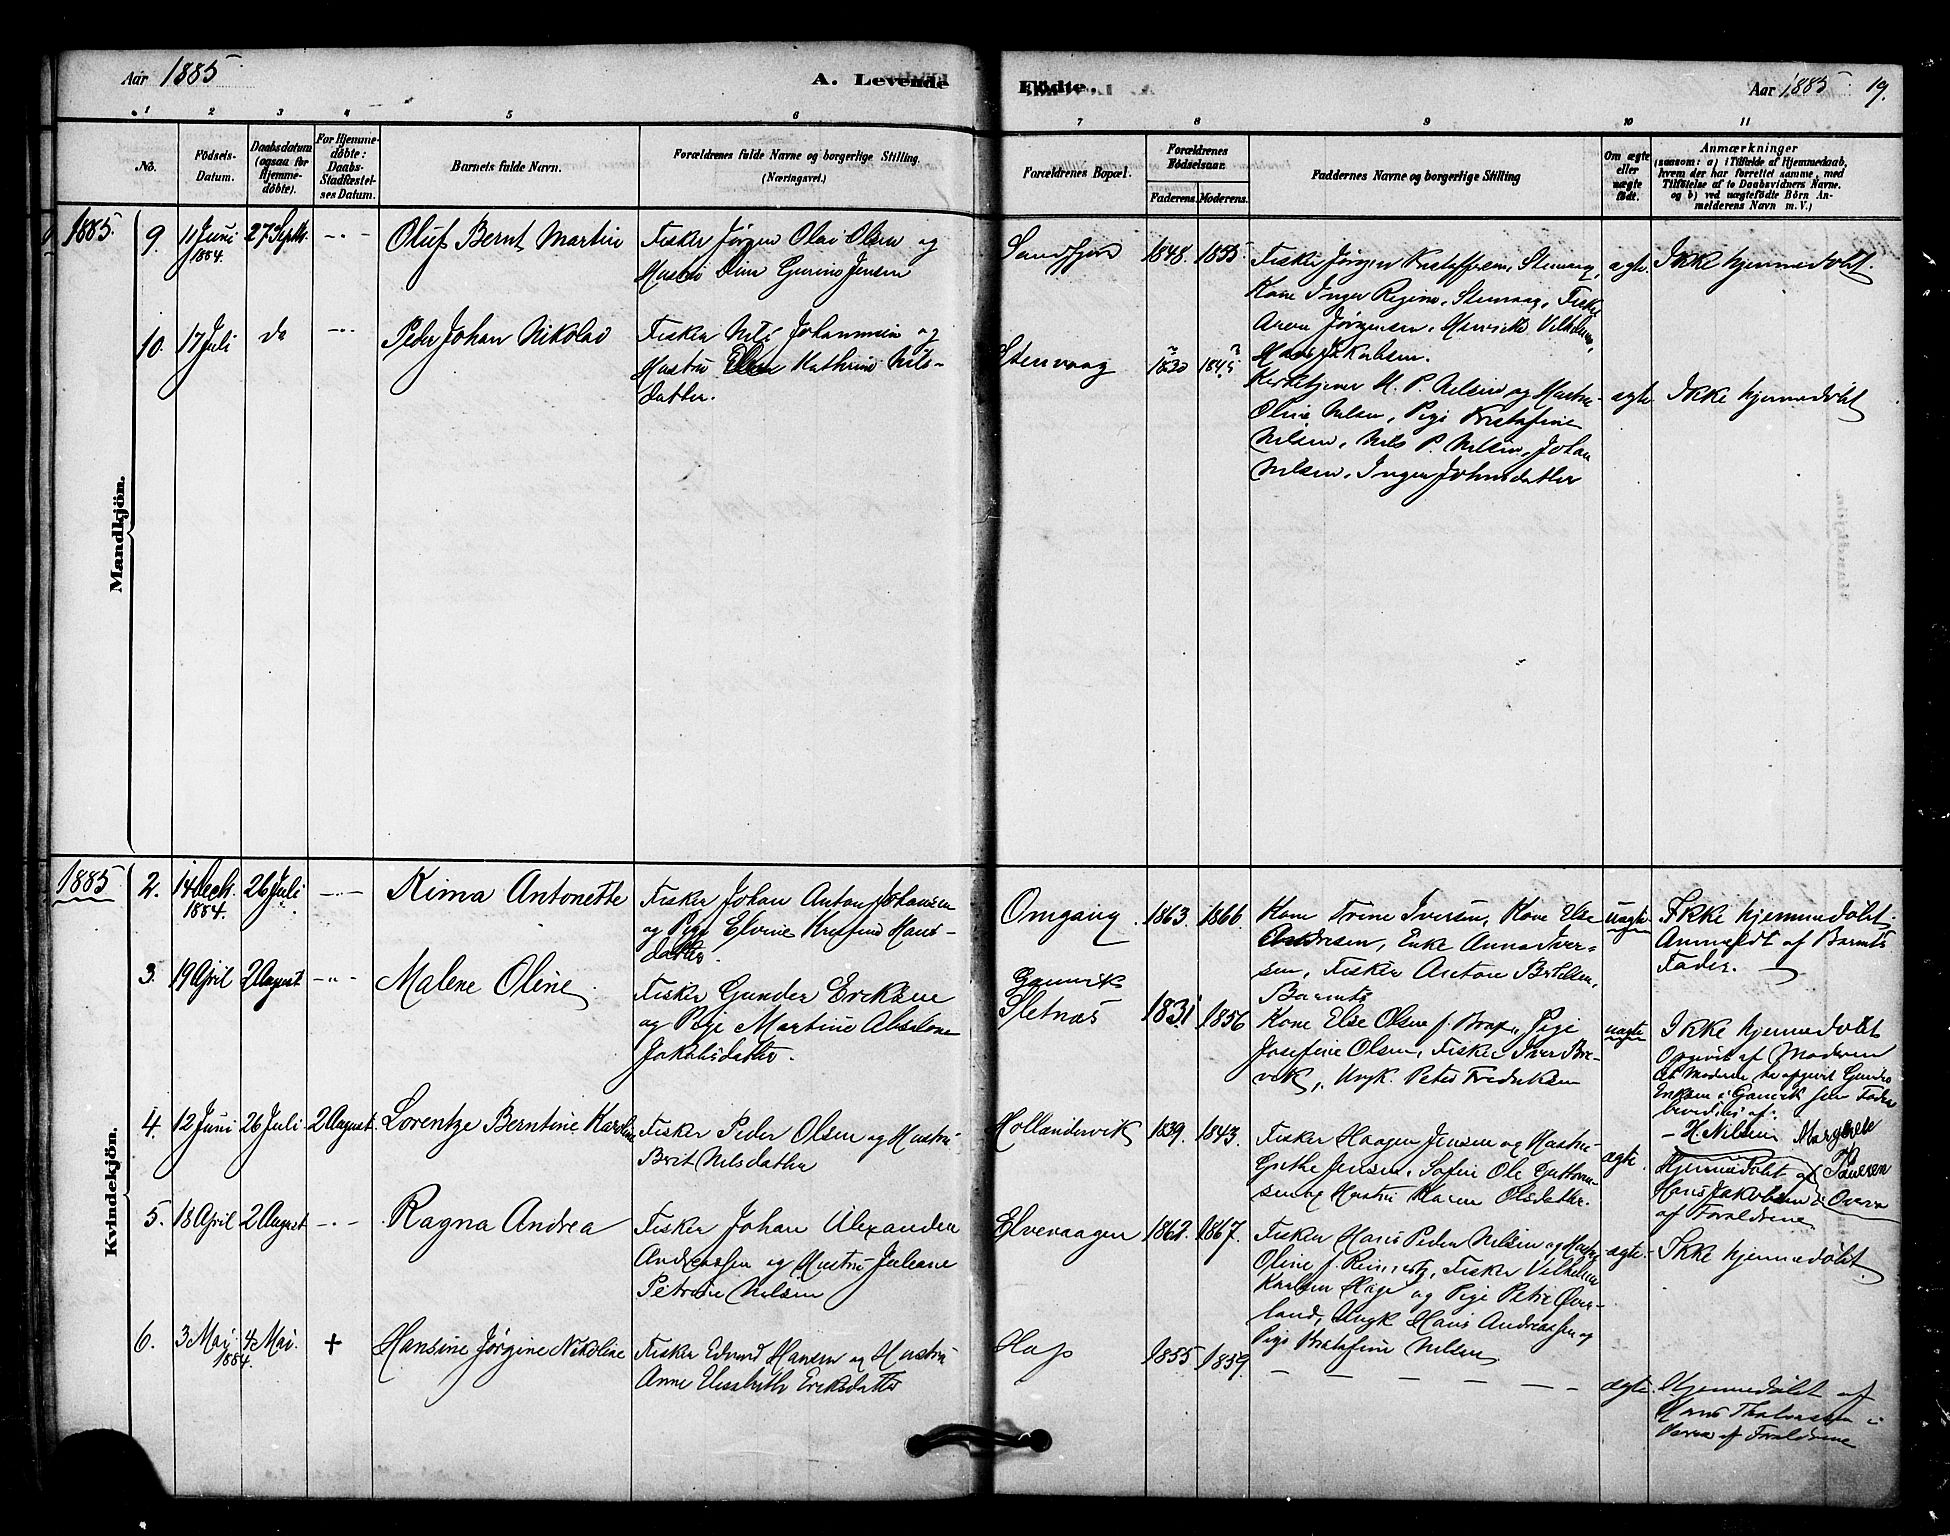 Aar 1885
A. Levende
Födte.
Aar 1885 19.
1 2 3 4 5 6 7 8 9 10 11
No.
Födsels-
Datum.
Daabsdatum
(ogsaa for
Hjemme-
döbte).
For Hjemme-
döbte:
Daabs-
Stadfæstel-
ses Datum.
Barnets fulde Navn.
Forældrenes fulde Navne og borgerlige Stilling.
(Næringsvei.)
Forældrenes Bopæl.
Forældrenes
Födselsaar.
Faderens. Moderens.
Faddernes Navne og borgerlige Stilling
Om ægte
eller
uægte
födt.
Anmærkninger
(saasom: a) i Tilfælde af Hjemmedaab,
hvem der har forrettet samme, med
Tilföielse af to Daabsvidners Navne.
og b) ved uægtefödte Börn An-
melderens Navn m. V.)
Mandkjön.
1885. 9. 11 Juni
1884.
27 Septb.
Oluf Bernt Martin
Fisker Jørgen Olai Olsen og
Hustru Gurine Jensen
Sandfjord
1848. 1855.
Fisker Jørgen Kristoffersen, Stenvaag,
Kone Inger Regine, Stenvaag, Fisker
Aron Jørgensen,
Hans Jakobsen.
ægte.
Ikke hjemmedøbt.
10. 17 Juli
do
Peder Johan Nikolai
Fisker Nils Johannesen og
Hustru Ellen Kathrine Nils-
datter.
Stenvaag
1830 1845
Kirketjener H. P. Nilsen og Hustru
Oline Nilsen, Pige Kristofine
Nilsen, Nils P. Nilsen, Johan
Nilsen, Inger Johnsdatter
ægte.
Ikke hjemmedøbt
Kvindekjön.
1885 2. 14 Decb.
1884.
26 Juli
Kima Antonette
Fisker Johan Anton Johansen
og Pige Elvine Hans-
datter.
Omgang
1863. 1866.
Kone Trine Iversen, Kone Else
Andresen, Enke Anna Iver-
sen, Fisker Anton Bertelsen,
Barnets
uægte
Ikke hjemmedøbt.
Anmeldt af Barnets
Fader.
3. 19 April 2 August
Malene Oline
Fisker Gunder Eriksen
og Pige Martine Abelone
Jakobsdatter.
Gamvik
Sletnæs
1831 1856
Kone Else Olsen f. Pige
Josefine Olsen, Fisker Iver Bre-
vik, Ungk. Peter Fredriksen
uægte
Ikke hjemmedøbt
Opgivet af Moderen
at Moderen har opgivet Gunder
Eriksen i Gamvik som Fader
bevidnes af:
H. Nilsen Margrete
4. 12 Juni 26 Juli 2 August
Lorentze Berntine Karoline
Fisker Peder Olsen og Hustru
Berit Nilsdatter
Hollændervik
1839. 1843.
Fisker Haagen Jensen og Hustru
Grethe Jensen, Ole Guttorm-
sen og Hustru Karen Olsdatter.
ægte.
Hjemmedøbt af
Hans Jakobsen
af Forældrene
5. 18 April 2 August
Ragna Andrea
Fisker Johan Alexander
Andreassen og Hustru Juliane
Petrine Nilsen
Elvevaagen
1862. 1867.
Fisker Hans Peder Nilsen og Hustru
Oline f. Fisker Vilhelm
Karlsen Hop og Pige Petra Øver-
land, Ungk Hans Andreassen og
Pige Kristofine Nilsen.
ægte.
Ikke hjemmedøbt.
6. 3 Mai
1884.
4 Mai.
+
Hansine Jørgine Nikoline
Fisker Edvard Hansen og Hustru
Anne Elisabeth Eriksdatter
Hop
1855. 1859.
ægte.
Hjemmedøbt af
Hans
af Forældrene